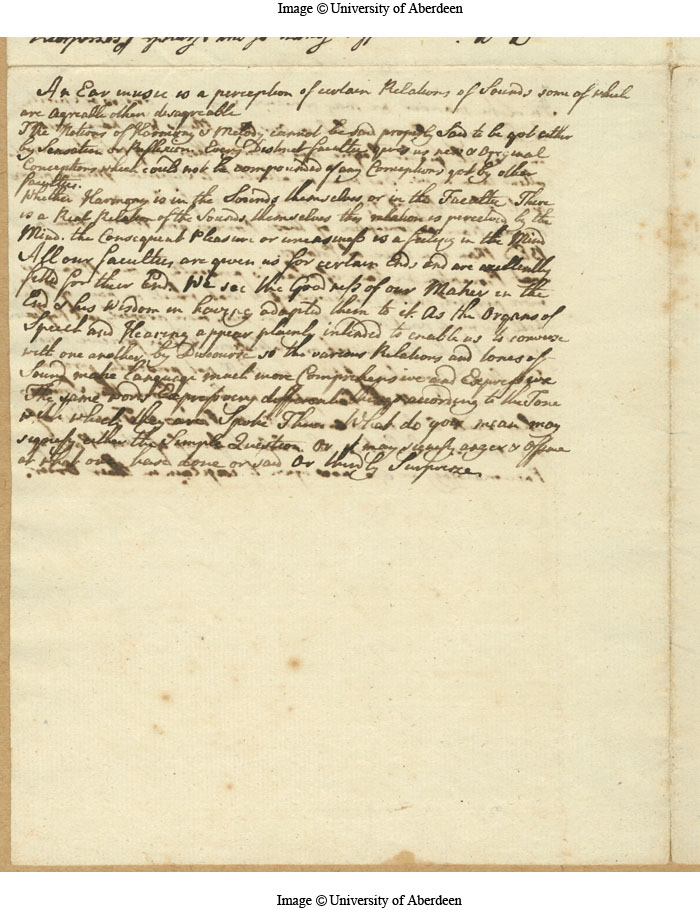 Image © University of Aberdeen
An Ear music is a perception of certain Relations of Sounds some of which
are agreable others desagreable
The Notions of Harmony & Melody cannot be said properly said to be got either
by Sensation or Reflexion. Every Distinct faculty gives us new & Original
Conceptions which could not be compounded of any Conceptions got by other
faculties.
Whether Harmony is in the Sounds themselves, or in the Facultie There
is a Real Relation of the Sounds themselves this relation is perceived by the
Mind. the Consequent Pleasure or uneasiness is a feeling in the Mind
All our faculties are given us for certain Ends and are excellently
fitted for their End. We see the Goodness of our Maker in the
End & his Wisdom in having adapted them to it. As the Organs of
Speech and Hearing appear plainly intended to enable us to converse
with one another by Discourse so the various Relations and tones of
Sound make Language much more Comprehensive and Expressive
The same words Expressing different things according to the Tone
with which they are Spoke Thus What do you mean may
signify either the Simple Question Or it may signify anger & Offence
at what one has done or said Or thirdly Surprize
Image © University of Aberdeen